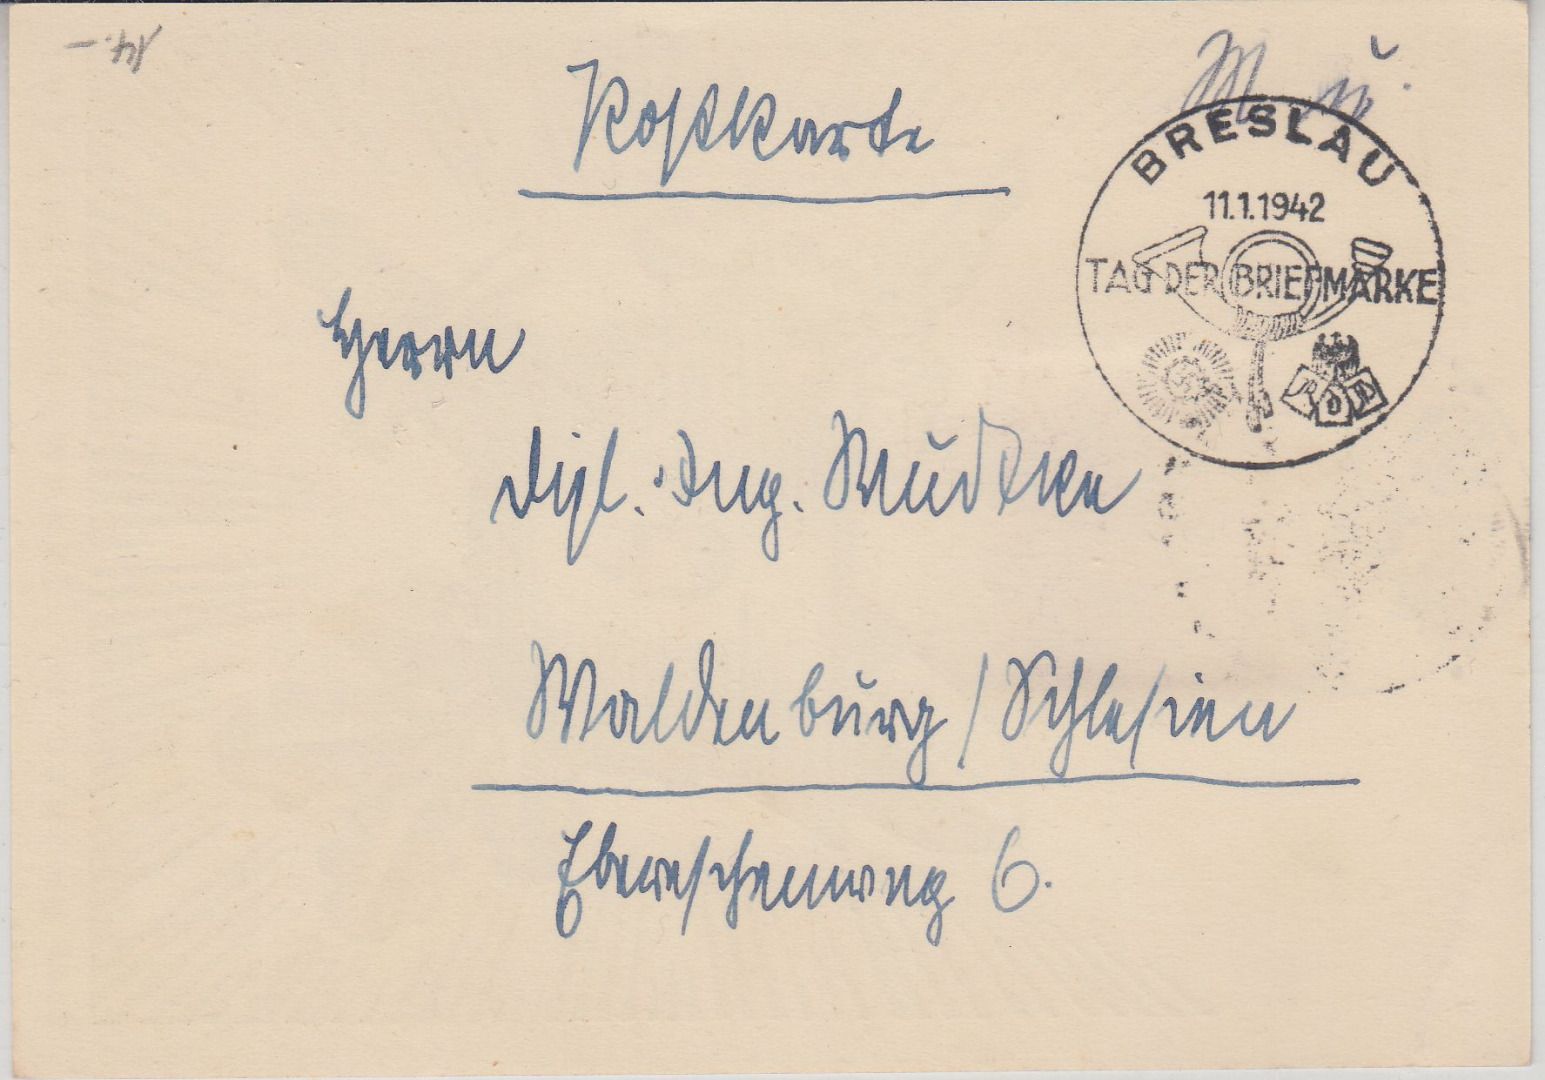 14.-
Postkarte
BRESLAU
11.1.1942
TAG DER BRIEFMARKE
RDP
Herrn
Dipl. Ing. Mudtke
Waldenburg / Schlesien
Ebereschenweg 6.